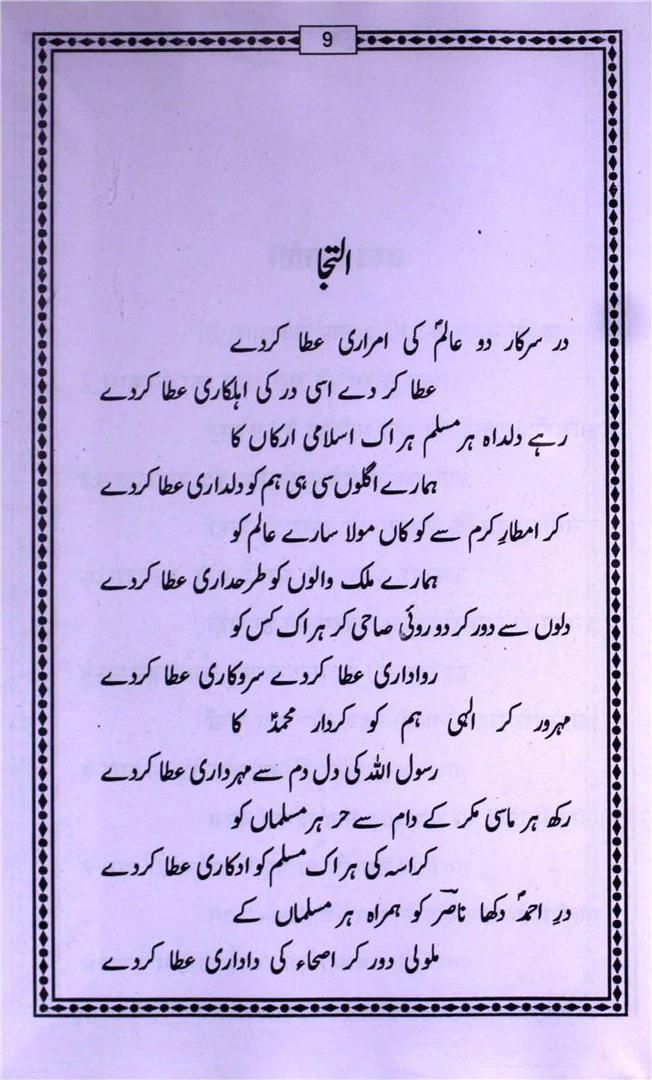 9
التجا
در سرکار دو عالمؐ کی امراری عطا کردے
عطا کر دے اسی در کی اہلکاری عطا کردے
رہے دلداہ ہر مسلم ہر اک اسلامی ارکاں کا
ہمارے اگلوں سی ہی ہم کو دلداری عطا کردے
کر امطارِ کرم سے کو کاں مولا سارے عالم کو
ہمارے ملک والوں کو طرحداری عطا کردے
دلوں سے دور کر دو روئی صاحی کر ہر اک کس کو
رواداری عطا کردے سروکاری عطا کردے
مہرور کر الہی ہم کو کردار محمدؐ کا
رسول اللہ کی دل دم سے مہرداری عطا کردے
رکھ ہر ماسی مکر کے دام سے حر ہر مسلماں کو
کراسہ کی ہر اک مسلم کو ادکاری عطا کردے
درِ احمدؐ دکھا ناصرؔ کو ہمراہ ہر مسلماں کے
ملولی دور کر اصحاء کی داداری عطا کردے